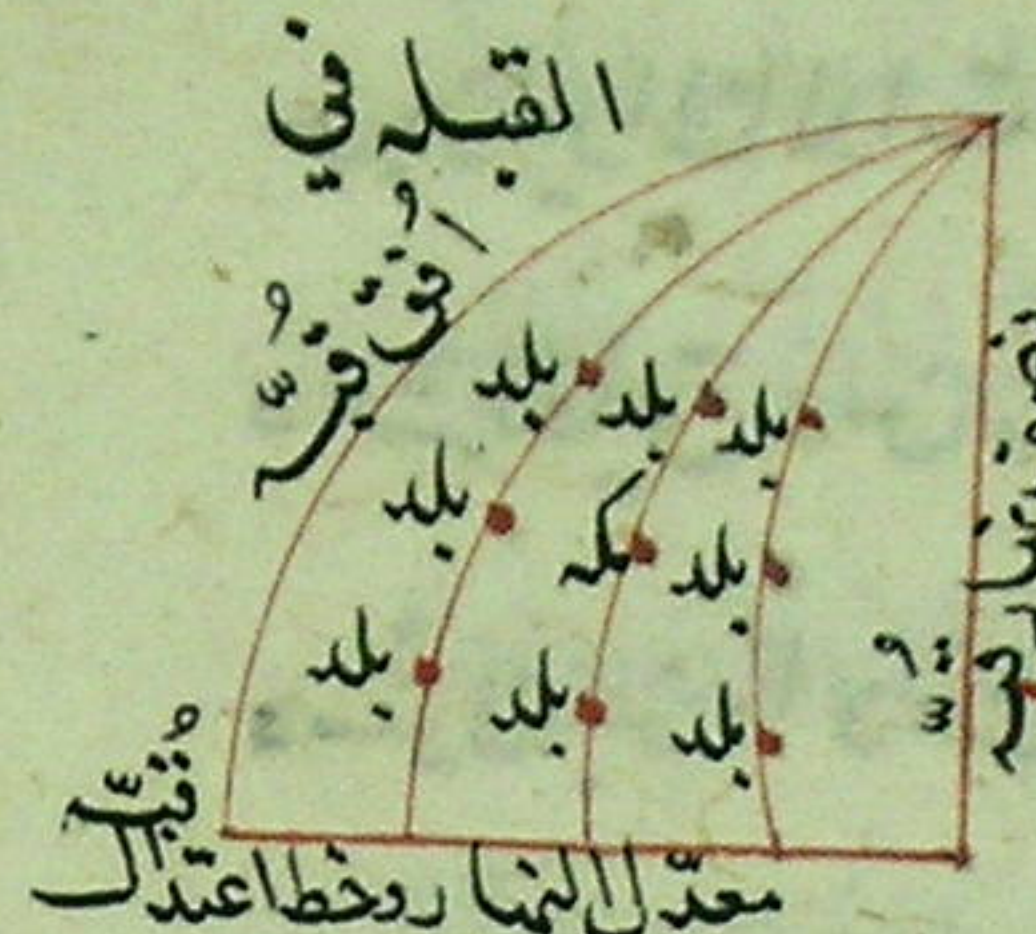 القبله في
اُفُق
بلد
بلد
بلد
بلد
مكه
بلد
بلد
بلد
بلد
قُبّه
معدّل النهار وخط اعتدال